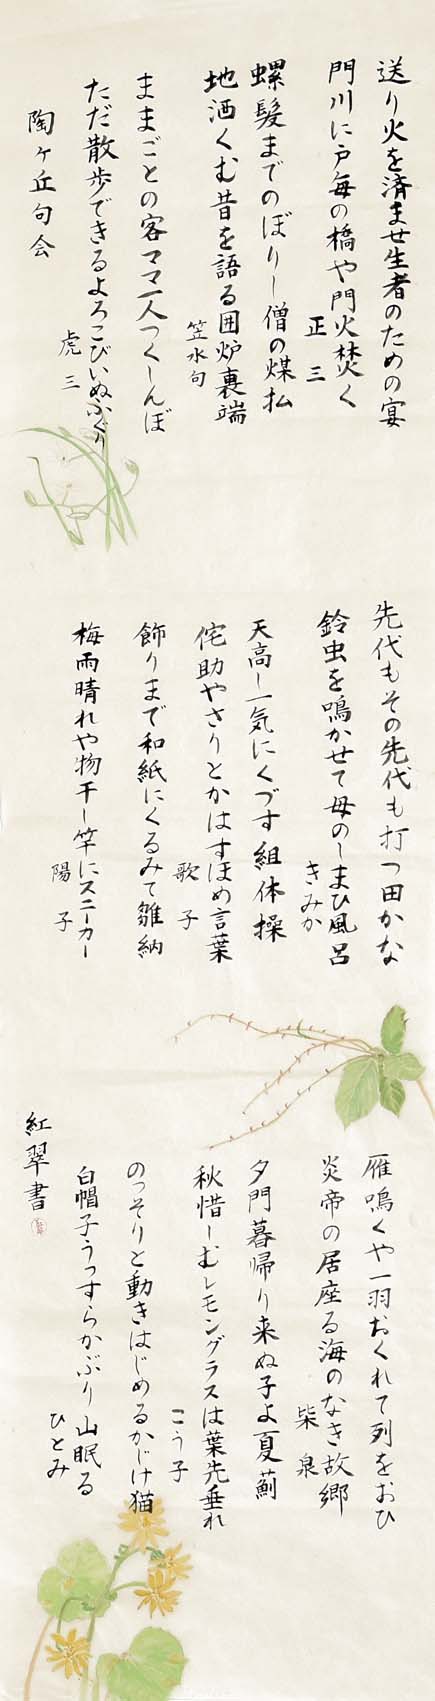 送り火を済ませ生者のための宴
門川に戸毎の橋や門火焚く
正三
螺髪までのぼりし僧の煤払
地酒くむ昔を語る囲炉裏端
笠水句
ままごとの客ママ一人つくしんぼ
ただ散歩できるよろこびいぬふぐり
虎三
陶ヶ丘句会
先代もその先代も打つ田かな
鈴虫を鳴かせて母のしまひ風呂
きみか
天高し一気にくづす組体操
侘助やさりとかはすほめ言葉
歌子
飾りまで和紙にくるみて雛納
梅雨晴れや物干し竿にスニーカー
陽子
雁鳴くや一羽おくれて列をおひ
炎帝の居座る海のなき故郷
柴泉
夕門暮帰り来ぬ子よ夏薊
秋惜しむレモングラスは葉先垂れ
こう子
のっそりと動きはじめるかじけ猫
白帽子うっすらかぶり山眠る
ひとみ
紅翠書